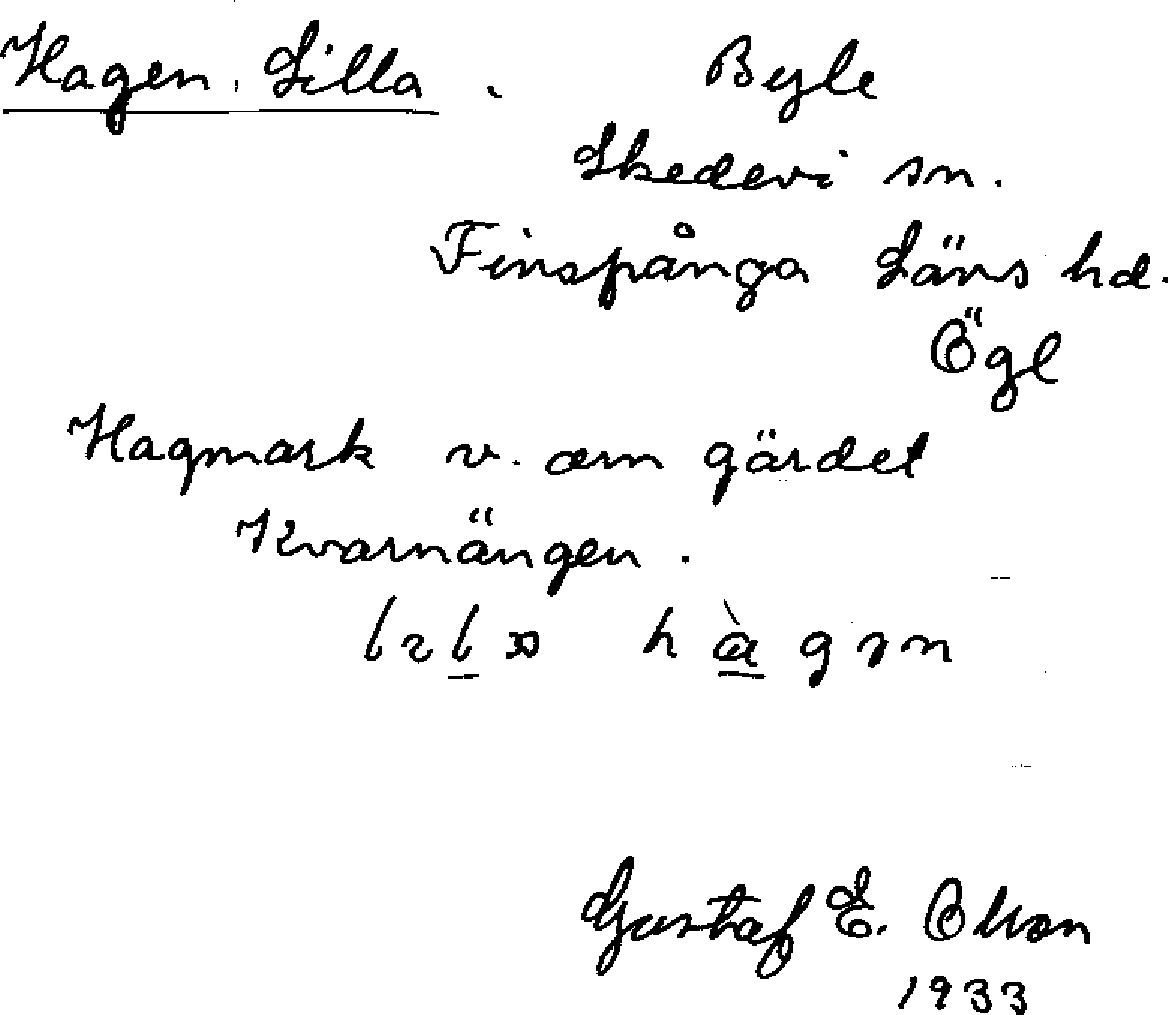 Hagen, Lilla. Byle
Skedevi sn.
Finspånga Läns hd.
Ögl
Hagmark v. om gärdet
Kvarnängen.
hàgən
Gustaf E. Olson
1933